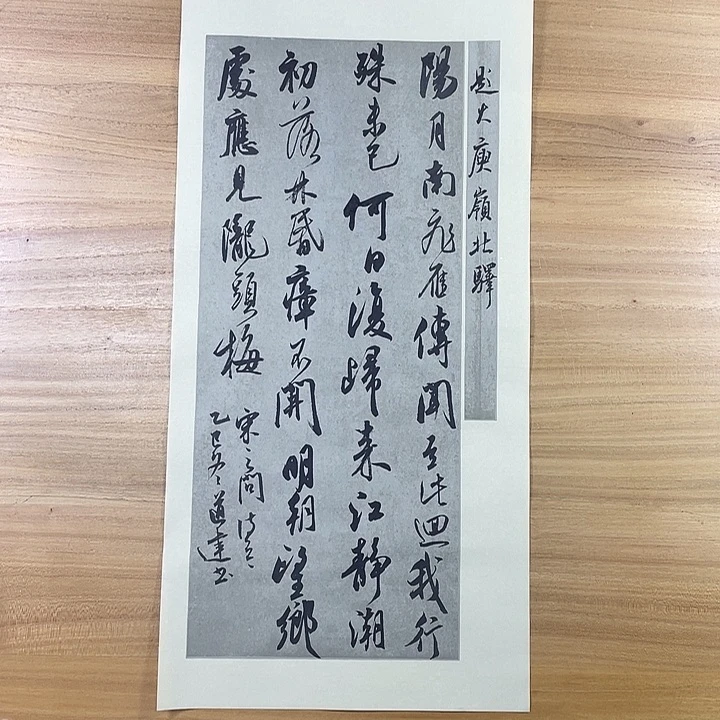 題大庾嶺北驛
陽月南飛雁傳聞至此迴我行
殊未已何日復歸来江静潮
初落林昏瘴不開明朝望鄉
處應見隴頭梅
宋之問詩
乙巳冬道達书